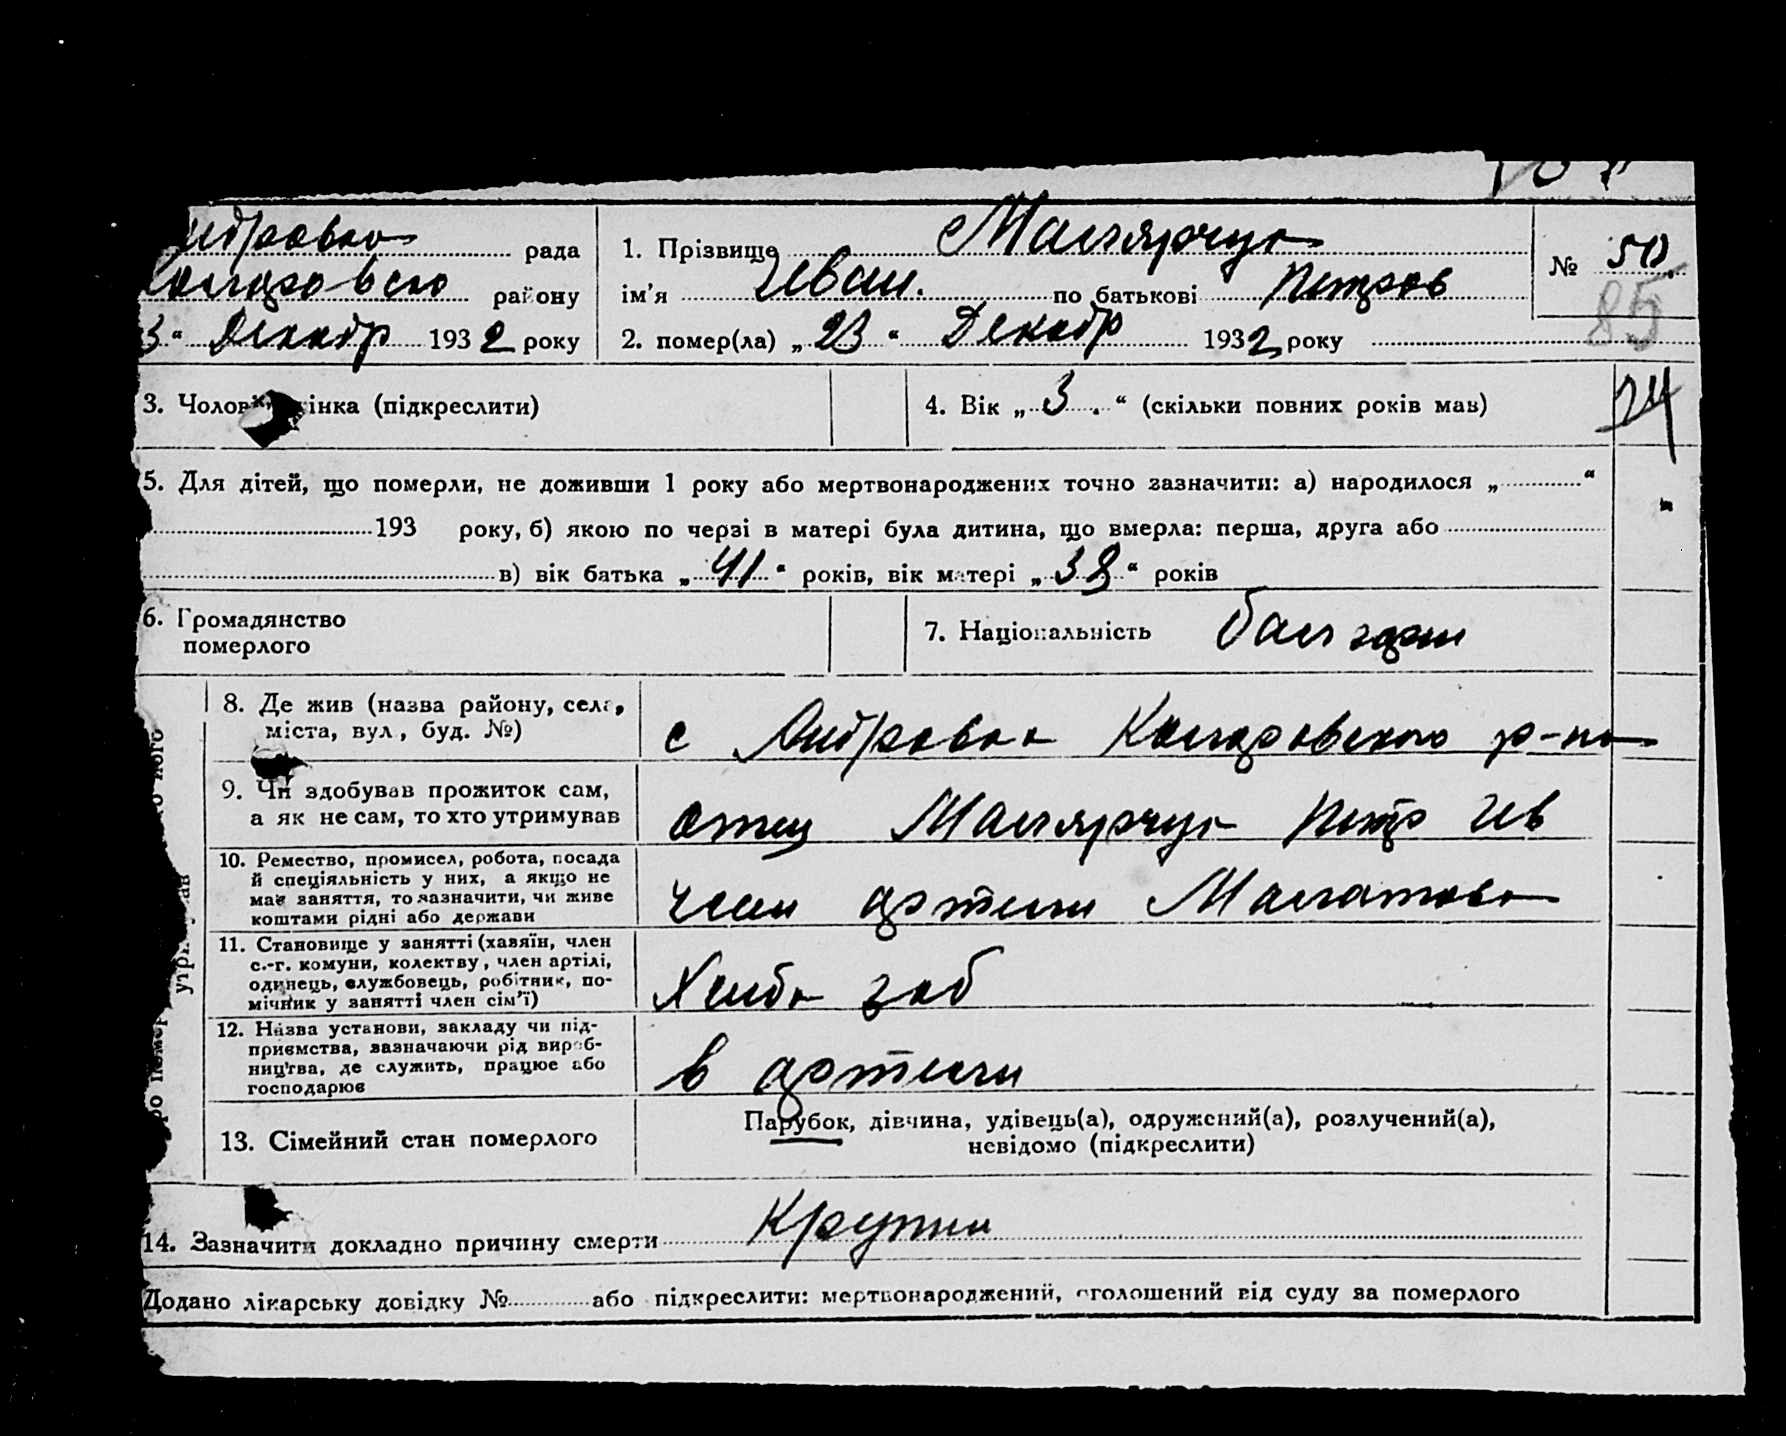 рада
1. Прізвище Маллярчук
№ 50
району
ім'я Иван. по батькові Петров
85
3 “ Декабр 1932 року
2. помер(ла) „ 23 “ Декабр 1932 року
3. Чолов інка (підкреслити)
4. Вік „ 3 . “ (скільки повних років мав)
24
5. Для дітей, що померли, не доживши 1 року або мертвонароджених точно зазначити: а) народилося „ “
193 року, б) якою по черзі в матері була дитина, що вмерла: перша, друга або
в) вік батька „ 41 “ років, вік матері „ 38 “ років
6. Громадянство
померлого
7. Національність болгарин
8. Де жив (назва району, села,
міста, вул., буд. №)
с Андровка Коларовского р-на
9. Чи здобував прожиток сам,
а як не сам, то хто утримував
отец Маллярчук Петр Ив
10. Ремество, промисел, робота, посада
й спеціяльність у них, а якщо не
має заняття, то зазначити, чи живе
коштами рідні або держави
член артели
11. Становище у занятті (хазяїн, член
с.-г. комуни, колективу, член артілі,
одинець, службовець, робітник, по-
мічник у занятті член сім'ї)
Хлебо роб
12. Назва установи, закладу чи під-
приємства, зазначаючи рід вироб-
ництва, де служить, працює або
господарює
в артели
13. Сімейний стан померлого
Парубок, дівчина, удівець(а), одружений(а), розлучений(а),
невідомо (підкреслити)
14. Зазначити докладно причину смерти Крупии
Додано лікарську довідку № або підкреслити: мертвонароджений, оголошений від суду за померлого